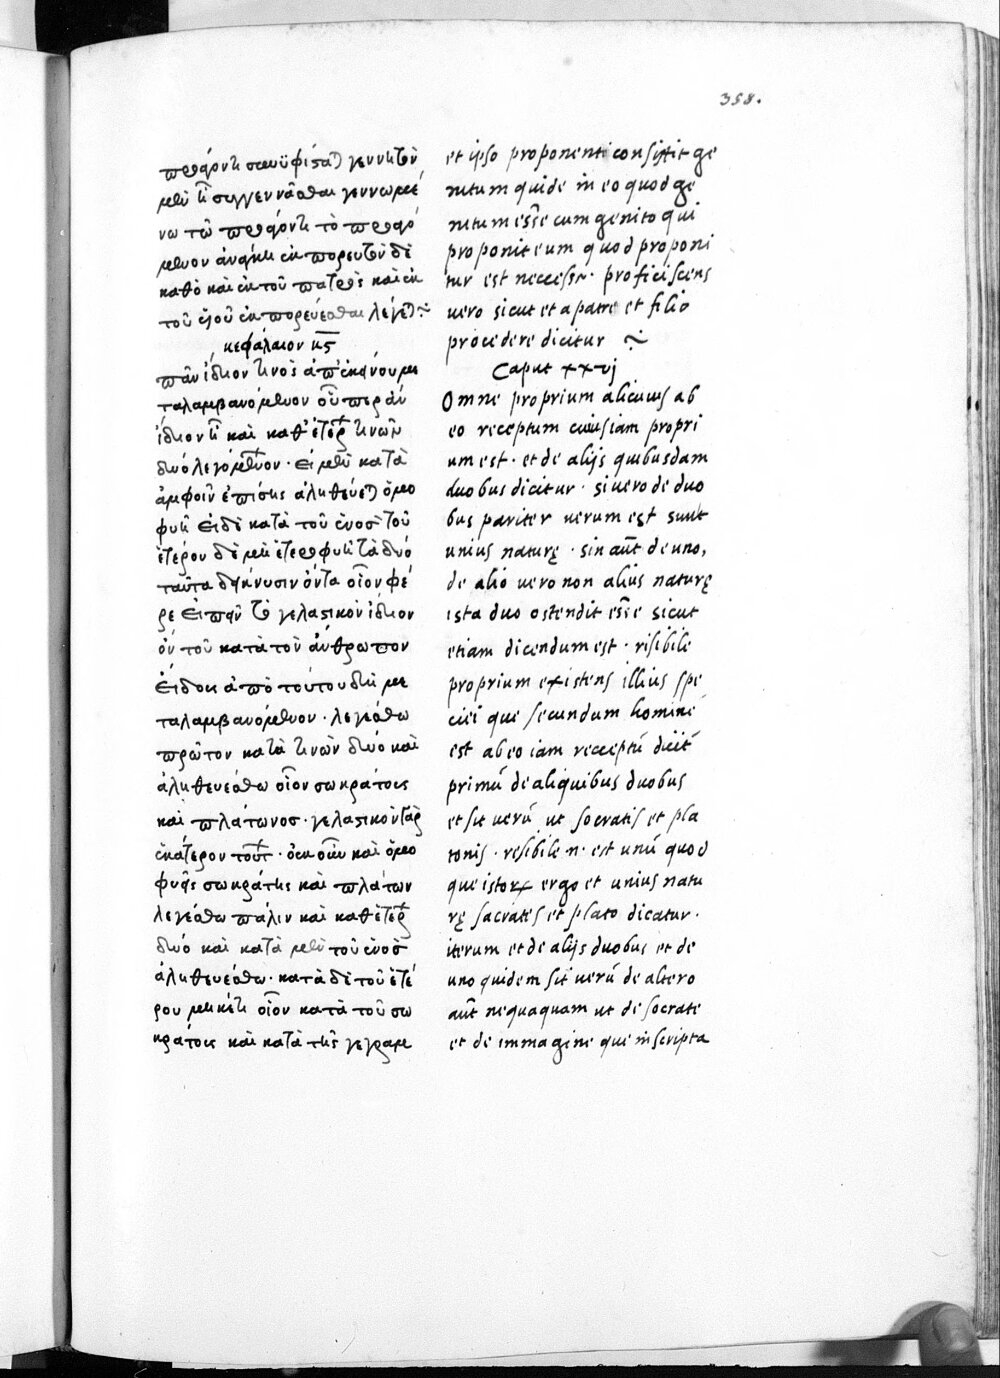 358.
προφέροντι συνυφίσταται γεννητὸν
μὲν τῷ συγγεννᾶσθαι γεννωμέ
νω τῶ προφέροντι τὸ προφε
μενον ἀνάγκη ἐκπορευτὸν δὲ
καθὸ καὶ ἐκ τοῦ πατρὸς καὶ ἐκ
τοῦ υἱοῦ ἐκπορεύεσθαι λέγεται
κεφάλαιον κς
πᾶν ἴδιον τινὸς ἀπ' ἐκείνου με
ταλαμβανόμενον οὗπερ ἂν
ἴδιον ᾖ καὶ καθ' ἑτέρων τινῶν
δύο λεγόμενον · εἰ μὲν κατὰ
ἀμφοῖν ἐπίσης ἀληθεύεται ὁμο
φυῆ εἰ δὲ κατὰ τοῦ ἑνὸς τοῦ
ἑτέρου δὲ μὴ ἑτεροφυῆ τὰ δύο
ταῦτα δείκνυσιν ὄντα οἷον φέ
ρε εἰπεῖν τὸ γελαστικὸν ἴδιον
ὂν τοῦ κατὰ τὸν ἄνθρωπον
εἴδους ἀπὸ τούτου δὴ με
ταλαμβανόμενον · λεγέσθω
πρῶτον κατὰ τινῶν δύο καὶ
ἀληθευέσθω οἷον σωκράτους
καὶ πλάτωνος · γελαστικὸν γὰρ
ἑκάτερον τούτων · οὐκοῦν καὶ ὁμο
φυεῖς σωκράτης καὶ πλάτων
λεγέσθω πάλιν καὶ καθ' ἑτέρων
δύο καὶ κατὰ μὲν τοῦ ἑνὸς
ἀληθευέσθω · κατὰ δὲ τοῦ ἑτέ
ρου μηκέτι οἷον κατὰ τοῦ σω
κράτους καὶ κατὰ τῆς γεγραμ
et ipso proponenti consistit ge
nitum quide in eo quod ge
nitum esse cum genito qui
proponit eum quod proponi
tur est necesse · proficiscens
vero sicut et a patre et filio
procedere dicitur
Caput xxvj
Omne proprium alicuius ab
eo receptum cuiusiam propri
um est · et de alijs quibusdam
duobus dicitur · si vero de duo
bus pariter verum est sunt
unius naturę · sin aut de uno,
de alio vero non alius naturę
ista duo ostendit esse sicut
etiam dicendum est · risibile
proprium existens illius spe
ciei que secundum homine
est ab eo iam receptu dicit
primu de aliquibus duobus
et sit veru ut socratis et pla
tonis · risibile n · est unu quod
que istorx ergo et unius natu
rę socrates et plato dicatur ·
iterum et de alijs duobus et de
uno quidem sit veru de altero
aut nequaquam ut de socrate
et de immagine que inscripta